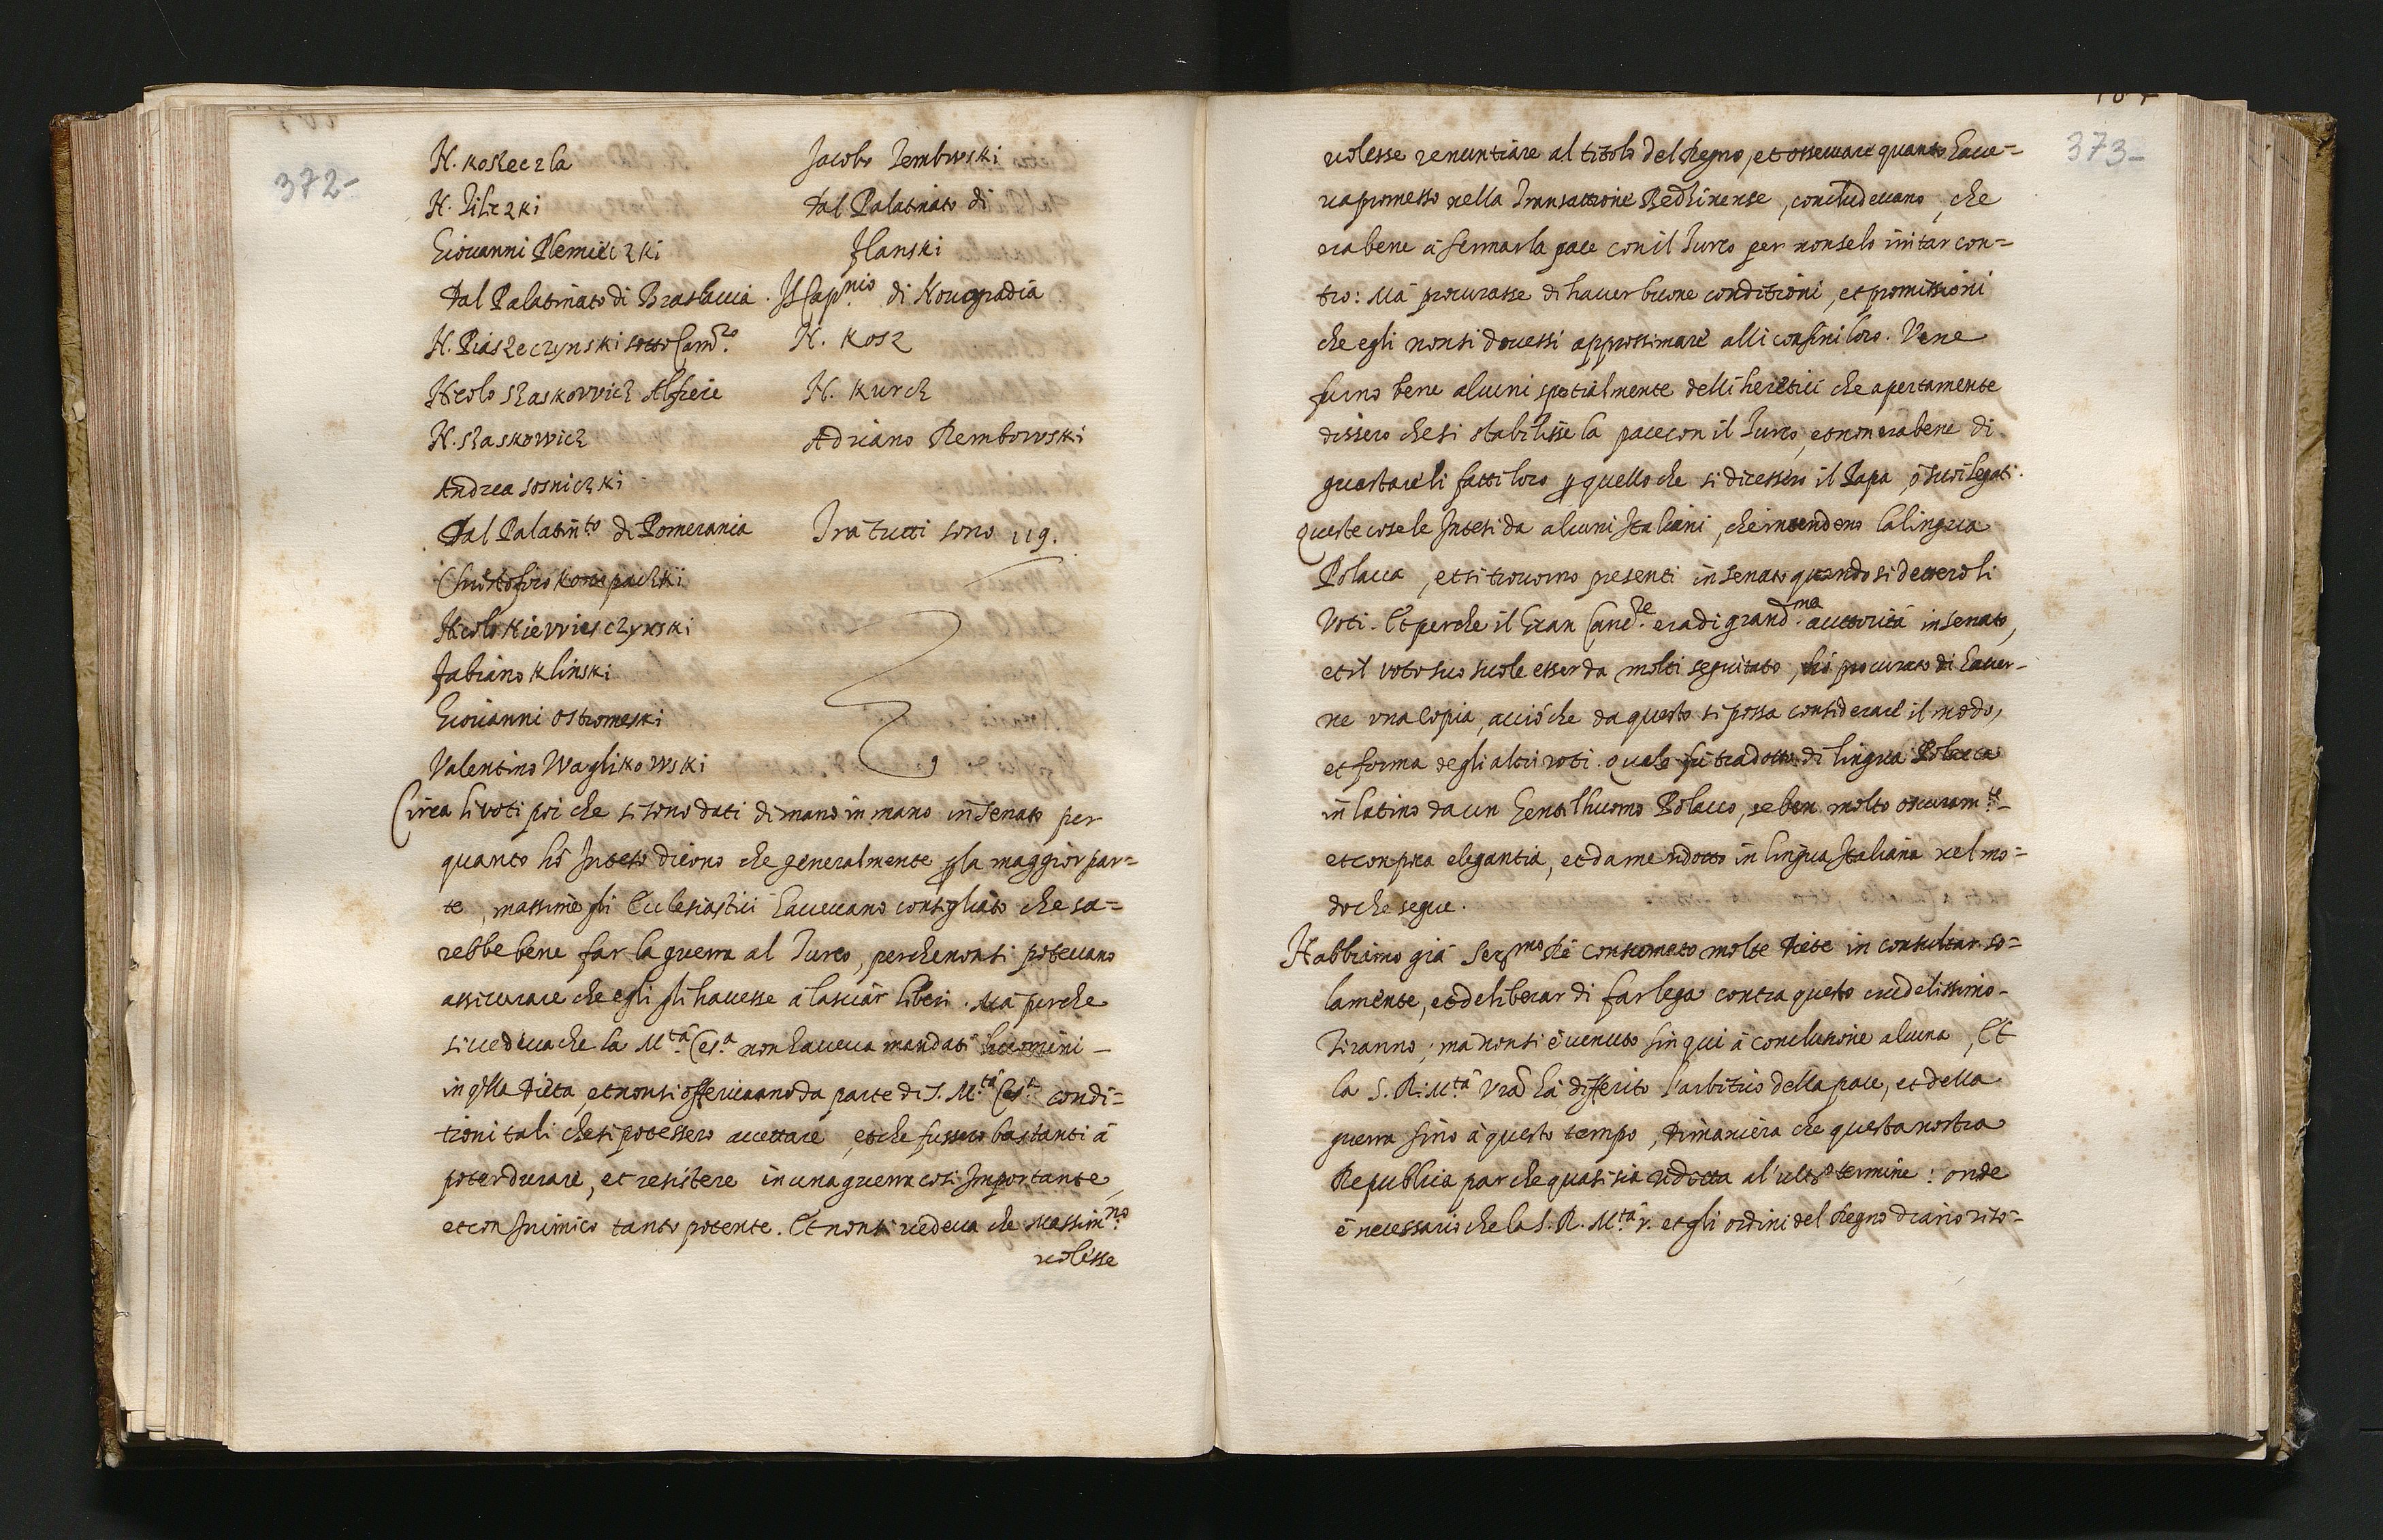 372-
N. Koseczla
N. Pilczki
Giovanni Plemiéczki
Dal Palatinato di Braslavia
N. Piaszeczynski sotto Cam.ro
Nicolo Skaskowich Alfiere
N. Skaskowich
Andrea Sosniczki
Dal Palatin.to di Pomerania
Christoforo Konepachki
Nicolo Kiewiesczynski
Fabiano Klinski
Giovanni Ostromeski
Valentino Waglikowski
Jacobo Zembwski
Dal Palatinato di
Flanski
Il Cap.nio di Novogradia
N. Kosz
N. Kurch
Adriano Rembowski
Trà tutti sono 119.
Circa li voti poi che si sono dati di mano in mano in Senato per
quanto hò Inteso dicono che generalmente p la maggior par=
te, massime gli Eccl'esiastici havevano consigliato che sa=
rebbe bene far la guerra al Turco, perche non si potevano
assicurare che egli gli havesse à lasciàr liberi. Mà perche
si vedeva che la M.tà Ces.a non haveva mandati huomini-
in q'lla Dieta, et non si offerivano da parte di S. M.tà Ces.a condi=
tioni tali che si potessero accettare, et che fussero bastanti à
poter durare, et resistere in una guerra così Importante,
et con Inimico tanto potente. Et non si vedeva che Massim.no
volesse
373-
volesse renuntiare al titolo del Regno, et osservare quanto have=
va promesso nella Transattione Bedzinense, concludevano, che
era bene à fermar la pace con il Turco per non selo irritar con=
tro: Mà procurasse di haver buone conditioni, et promissioni
che egli non si dovessi approssimare alli confini loro. Vene
furno bene alcuni spetialmente delli heretici che apertamente
dissero che si stabilisse la pace con il Turco, et non era bene di
guastare li fatti loro p quello che si dicessero il Papa, ò suoi legati.
Queste cose le Intesi da alcuni Italiani, che intendono la lingua
Polacca, et si trovorno presenti in Senato quando si devero li
Voti. Et perche il Gran Canc.re era di grand.ma auttorità in Senato,
et il voto suo suole esser da molti seguitato, hò procurato di haver-
ne una Copia, acciò che da questo si possa considerare il modo,
et forma degli altri voti. Quale fù tradotto di lingua Polacca
in latino da un Gentilhuomo Polacco, se ben molto oscuram.te-
et con poca elegantia, et da me ridotto in lingua Italiana nel mo=
do che segue.
Habbiamo già Ser.mo Rè consumato molte Diete in consultar so=
lamente, et deliberar di far lega contra questo crudelissimo-
Tiranno; mà non si è venuto fin qui à conclusione alcuna, Et
la S. R. M.tà Vrà hà differito l'arbitrio della pace, et della
guerra fino à questo tempo, di maniera che questa nostra
Republica par che quasi sia ridotta al'ult.o termine: onde
è necessario che la S. R. M.tà V. et gli ordini del Regno diano riso=